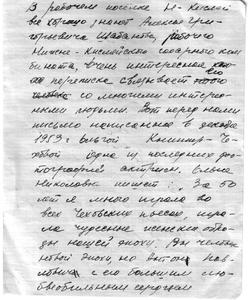 В рабочем посёлке Н-Кислой
все хорошо знают Алексея Гри-
горьевича Шабанова, рабочего
Нижне-Кислайского сахарного ком
бината. Очень интересная
переписка связывает его
со многими интерес-
ными людьми. Вот перед нами
письмо написанное в декабре
1953 г. вдовой Книппер-Че-
ховой одна из последних фо-
тографий актрисы. Ольга
Николаевна пишет: За 50
лет я много играла во
всех Чеховских пьесах, игра-
ла чудесные женские обра-
зы нашей эпохи.
новой эпохи, но Антон Пав-
лович с его большим лю-
бвеобильным сердцем